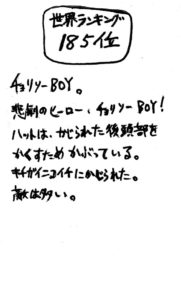 世界ランキング
185位
チョリソーBOY。
悲劇のヒーロー、チョリソーBOY!
ハットは、かじられた後頭部を
かくすためかぶっている。
キチガイニコイチにかじられた。
敵は多い。